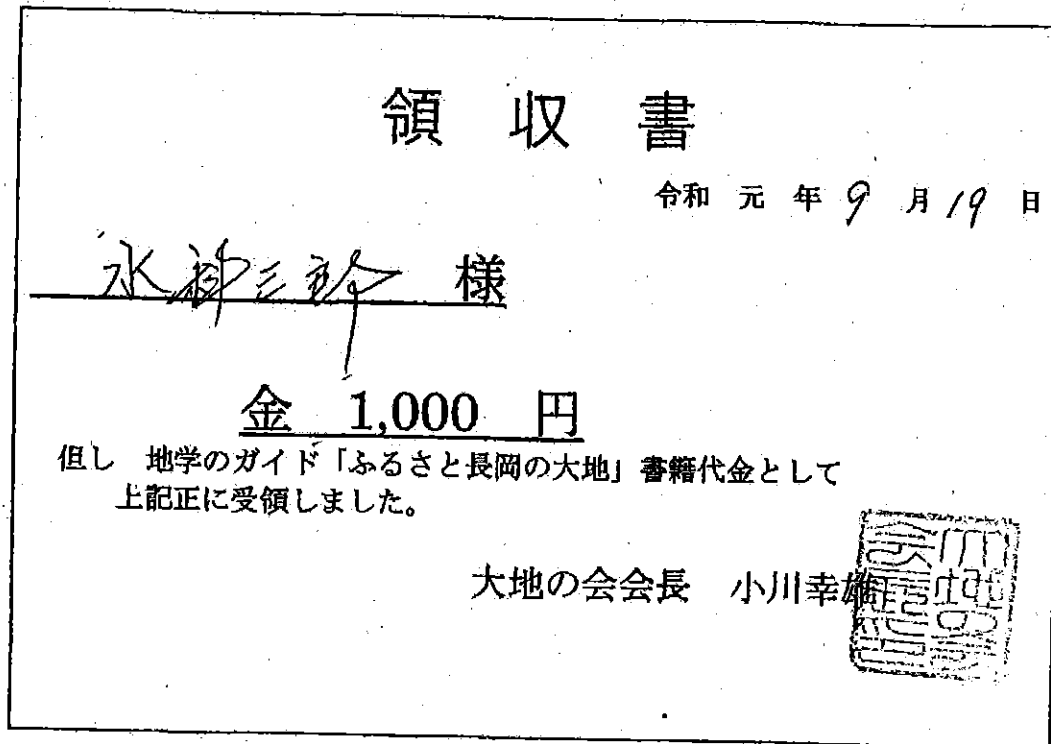 領収書
令和 元 年 9 月 19 日
様
金 1,000 円
但し 地学のガイド「ふるさと長岡の大地」書籍代金として
上記正に受領しました。
大地の会会長 小川幸雄